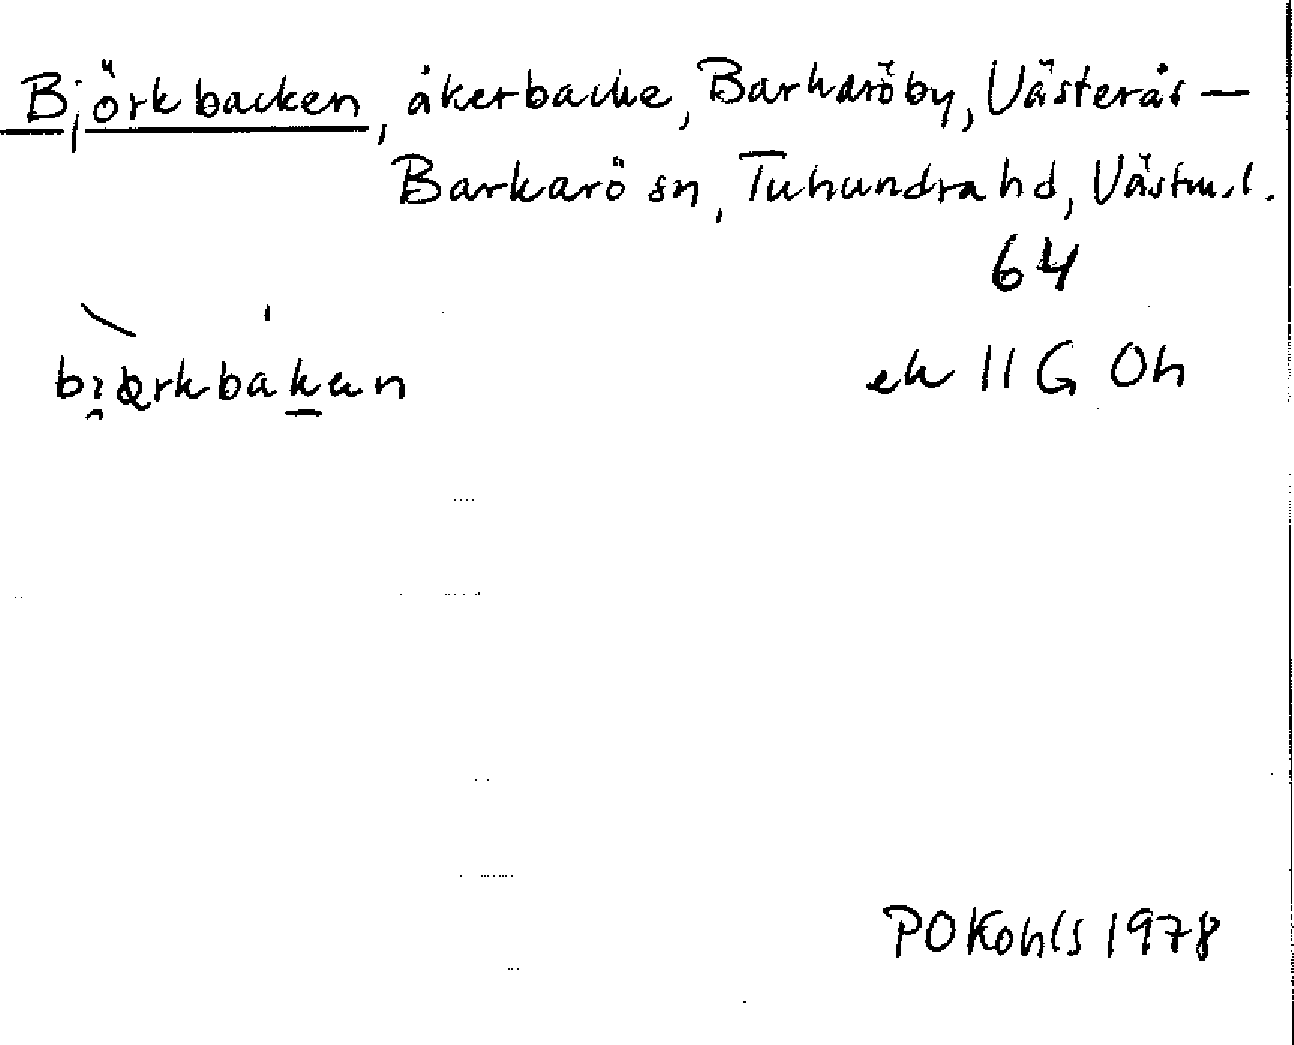 Björkbacken, åkerbacke, Barkaröby, Västerås-
Barkarö sn, Tuhundra hd, Västml.
64
ek 11 G 0h
P O Kohls 1978